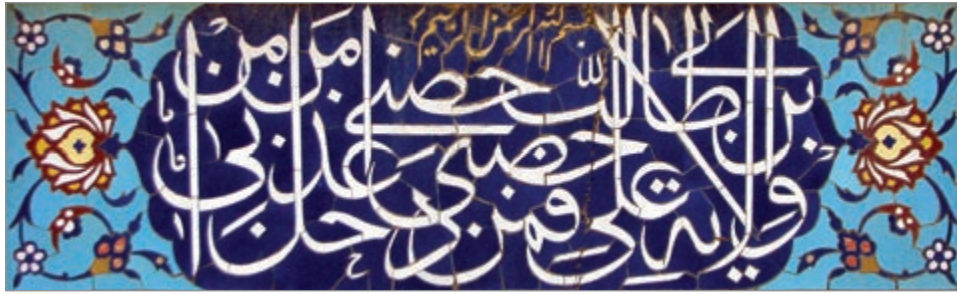 بسم الله الرحمن الرحيم
ولاية علي بن ابي طالب حصني فمن دخل حصني امن من عذابي